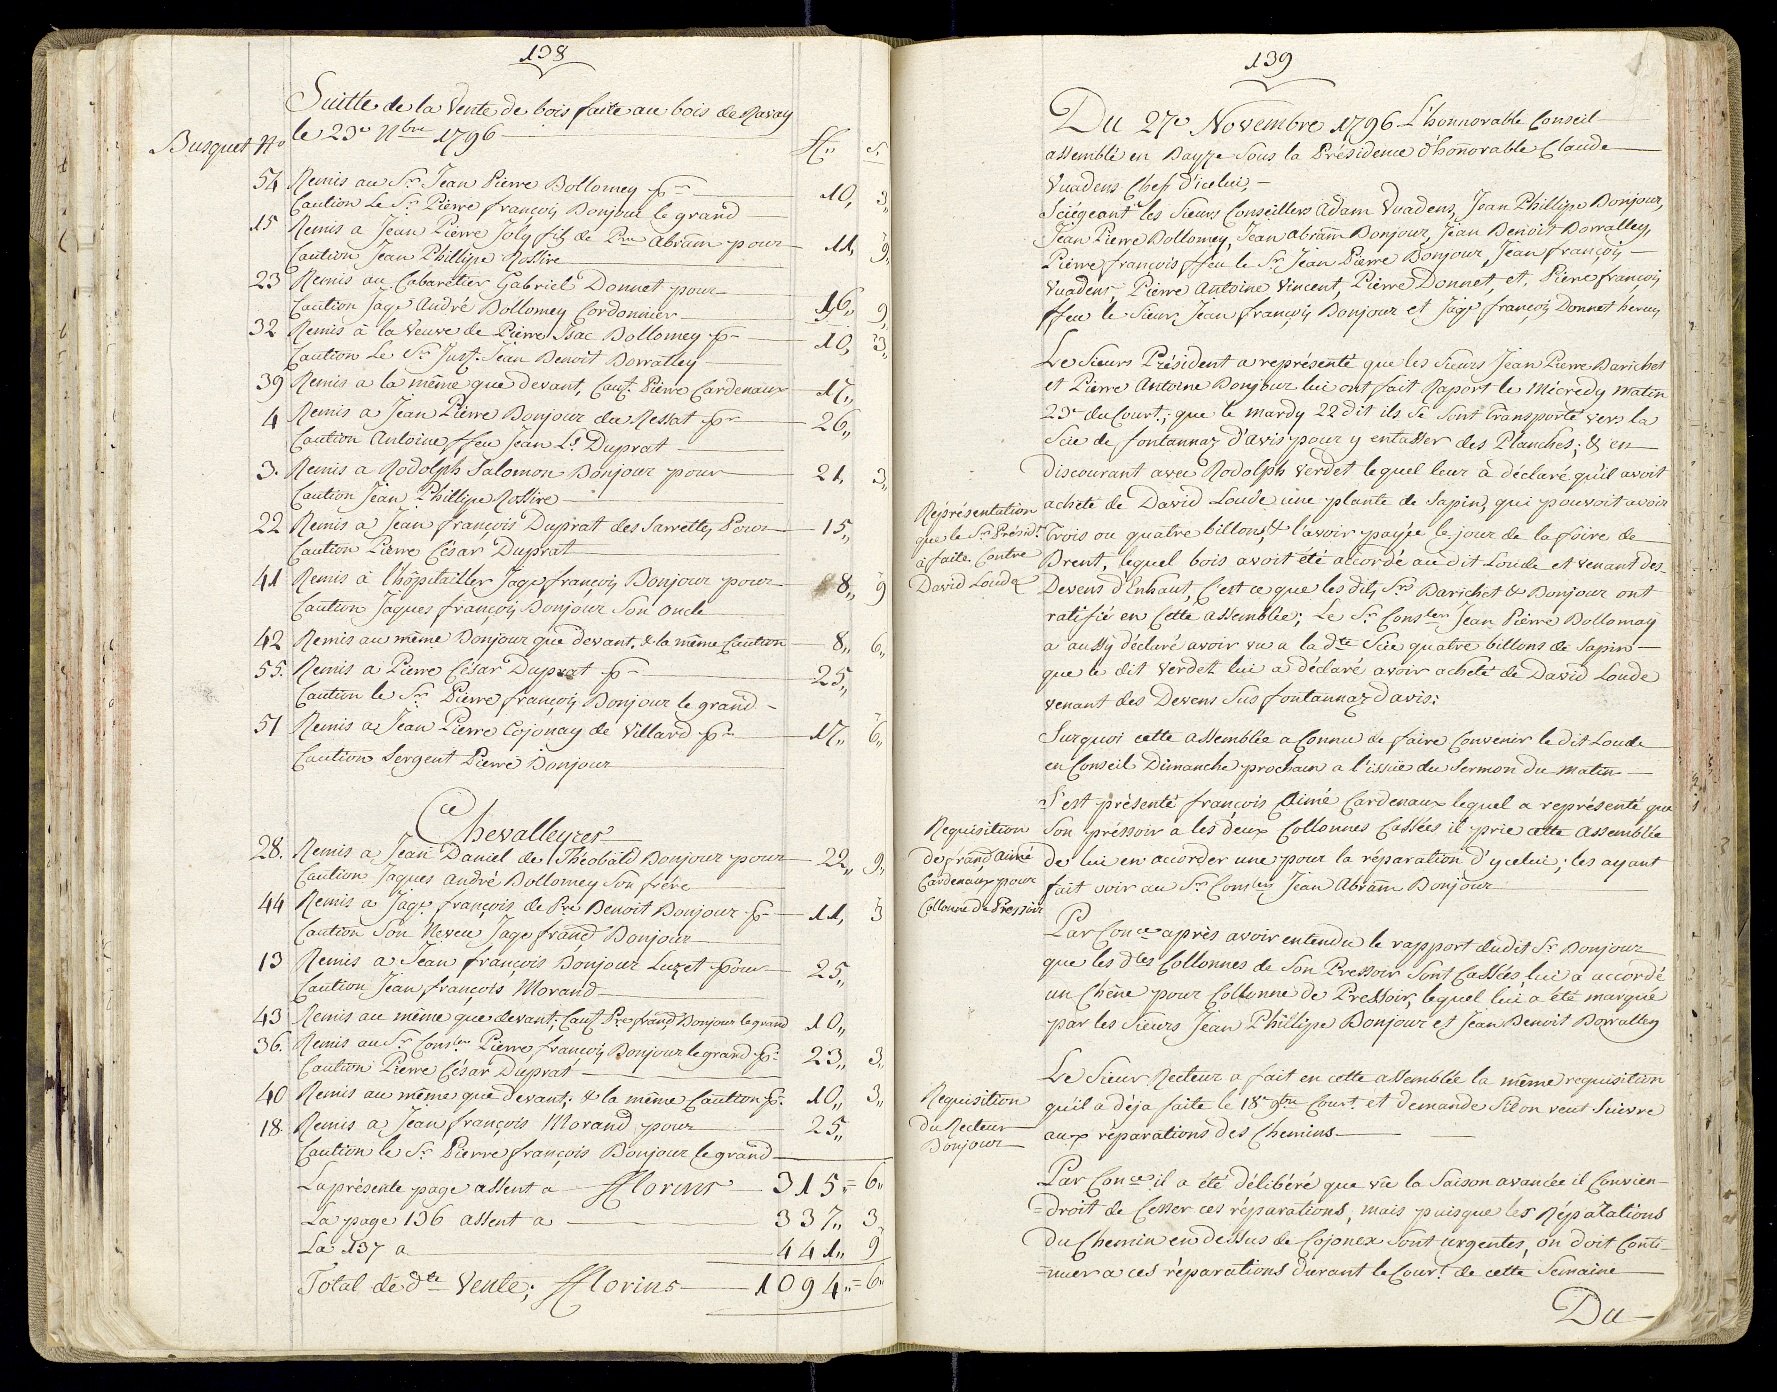 138
Suitte de la Vente de bois faite au bois de Ravay
Busquet No le 23e Nbre 1796 ff. s.
54 Remis au Sr Jean Pierre Dollomey pr 10, 3,,
Caution Le Sr Pierre françois Bonjour le grand
15 Remis a Jean Pierre Joly fils de Pre Abram pour 11, 9,,
Caution Jean Phillipe Rossire
23 Remis au Cabaretier Gabriel Donnet pour
Caution Jaqs André Dollomey Cordonnier 16,, 9,
32 Remis à la Veuve de Pierre Isac Dollomey pr 10, 3,,
Caution Le Sr Just. Jean Benoit Dorralley
39 Remis a la même que devant, Caut. Pierre Cardenaux 17,,
4 Remis a Jean Pierre Bonjour du Ressat pr 26,,
Caution Antoine ffeu Jean Ls Duprat
3. Remis a Rodolph Salomon Bonjour pour 21, 3,,
Caution Jean Phillipe Rossire
22 Remis a Jean françois Duprat des Sarrettes Pour 15,,
Caution Pierre César Duprat
41 Remis à l'hôpitailler Jaqs françois Bonjour pour 8,, 9
Caution Jaques françois Bonjour Son oncle
42 Remis au même Bonjour que devant, & la même Caution 8,, 6,,
55. Remis a Pierre César Duprat pr 25,,
Caution le Sr Pierre françois Bonjour le grand
51 Remis a Jean Pierre Cojonay de Villard pr 17,, 6,,
Caution Sergent Pierre Bonjour
Chevalleyres
28. Remis a Jean Daniel de Théobald Bonjour pour 22,, 9,,
Caution Jaques André Dollomey Son frére
44 Remis a Jaqs françois de Pre Benoit Bonjour pr 11, 3
Caution Son Neveu Jaqs franç Bonjour
13 Remis a Jean françois Bonjour Luzet pour 25,
Caution Jean françois Morand
43 Remis au même que devant; Caut Pre franç Bonjour le grand 10,,
36. Remis au Sr Conser Pierre françois Bonjour le grand pr 23, 3,
Caution Pierre César Duprat
40 Remis au même que devant; & la même Caution pr 10,, 3,,
18 Remis a Jean françois Morand pour 25,,
Caution le Sr Pierre françois Bonjour le grand
La présente page assent a fflorins 315,,= 6,,
La page 136 assent a 337,, 3
La 137 a 441,, 9
Total de dte Vente; fflorins 1094,,= 6,,
139
Du 27e Novembre 1796 L'honnorable Conseil
assemblé en Bayze Sous la Présidence d'honnorable Claude
Vuadens Chef d'icelui,
Sciégeant les Sieurs Conseillers Adam Vuadens, Jean Phillipe Bonjour,
Jean Pierre Dollomey, Jean Abram Bonjour, Jean Benoit Dorralley,
Pierre françois ffeu le Sr Jean Pierre Bonjour, Jean françois
Vuadens, Pierre Antoine Vincent, Pierre Donnet, et Pierre françois
ffeu le Sieur Jean françois Bonjour et Jaqs françois Donnet
Le Sieurs Président a représenté que les Sieurs Jean Pierre Darichet
et Pierre Antoine Bonjour lui ont fait Raport le Mécredy Matin
23e du Court.; que le mardy 22 dit ils Se Sont transporté vers la
Scie de fontannaz d'avis pour y entasser des Planches; & en
discourant avec Rodolph Verdet lequel leur à déclaré qu'il avoit
acheté de David Loude une plante de Sapin, qui pouvoit avoir
Représentation
que le Sr Présidt
à faite Contre
David Loude
Trois ou quatre billons, & l'avoir payée le jour de la foire de
Brent, lequel bois avoit été acordé au dit Loude et venant des
Devens d'Enhaut, C'est ce que les dits Srs Darichet & Bonjour ont
ratifié en Cette assemblée; Le Sr Consler Jean Pierre Dollomay
a aussy déclaré avoir vu a la dte Scie quatre billons de Sapin
que le dit Verdet lui a déclaré avoir acheté de David Loude
venant des Devens Sus fontannaz davis:
Surquoi cette assemblée a Connu de faire Convenir le dit Loude
en Conseil Dimanche prochain a l'issüe du Sermon du Matin
Requisition
de franç Aimé
Cardenaux pour
Collonne de Pressoir
S'est présenté françois Aimé Cardenaux lequel a représenté que
Son préssoir a les deux Collonnes Cassées il prie cette assemblée
de lui en accorder une pour la réparation d'ycelui; les ayant
fait voir au Sr Consler Jean Abram Bonjour
Par Conce après avoir entendu le rapport dudit Sr Bonjour
que les dtes Collonnes de Son Pressoir Sont Cassées, lui a accordé
un Chêne pour Collonne de Pressoir, lequel lui a été marqué
par les Sieurs Jean Phillipe Bonjour et Jean Benoit Dorralley
Requisition
du Recteur
Bonjour
Le Sieur Recteur a fait en cette assemblée la même requisition
qu'il a déja faite le 18e 9bre Court. et demande Si l'on veut Suivre
aux réparations des Chemins
Par Conce il a été délibéré que vû la Saison avancée il Convien-
=droit de Cesser ces réparations, mais puisque les Réparations
du Chemin en dessus de Cojonex Sont urgentes, on doit Conti-
=nuer a ces réparations durant le Court. de cette Semaine
Du